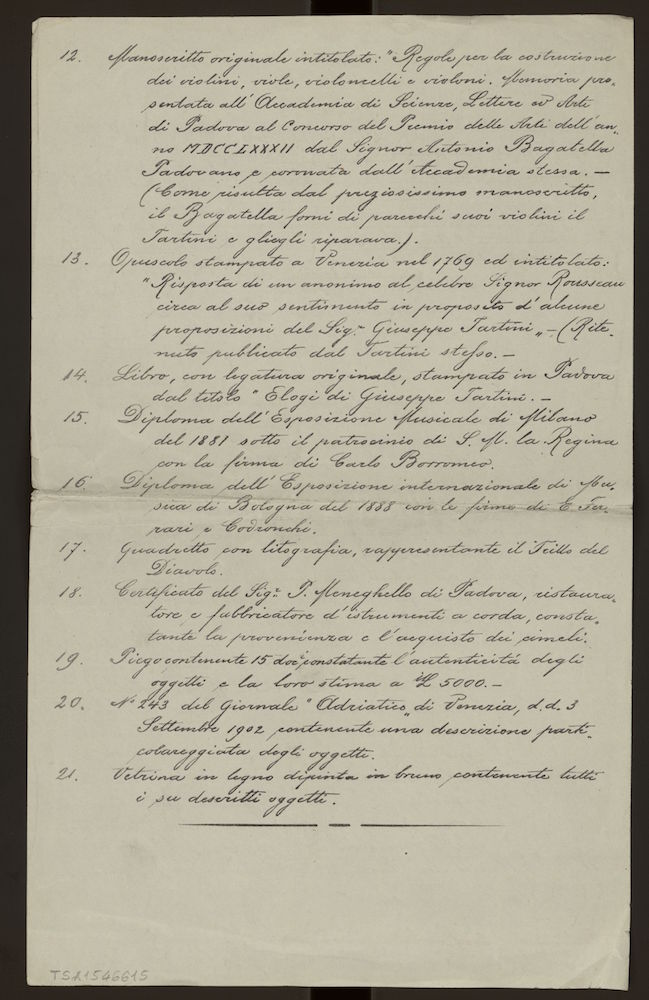 12. Manoscritto originale intitolato: "Regole per la costruzione
dei violini, viole, violoncelli e violoni. Memoria pre„
sentata all' Accademia di Scienze, Lettere ed Arti
di Padova al Concorso del Premio delle Arti dell' an„
no MDCCLXXXII dal Signor Antonio Bagatella
Padovano e coronata dall' Accademia stessa. —
(Come risulta dal preziosissimo manoscritto,
il Bagatella forni di parecchi suoi violini il
Tartini e gliegli riparava.).
13. Opuscolo stampato a Venezia nel 1769 ed intitolato:
"Risposta di un anonimo al celebre Signor Rousseau
circa al suo sentimento in proposito d' alcune
proposizioni del Sig.r Giuseppe Tartini„ — (Rite„
nuto publicato dal Tartini stesso. —
14. Libro, con legatura originale, stampato in Padova
dal titolo "Elogi di Giuseppe Tartini. —
15. Diploma dell' Esposizione Musicale di Milano
del 1881 sotto il patrocinio di S. M. la Regina
con la firma di Carlo Borromeo.
16. Diploma dell' Esposizione internazionale di Mu„
sica di Bologna del 1888 con le firme di E Fer„
rari e Codronchi.
17. Quadretto con litografia, rappresentante il Trillo del
Diavolo.
18. Certificato del Sig.r P. Meneghello di Padova, ristaura„
tore e fabbricatore d' istrumenti a corda, consta„
tante la provenienza e l'acquisto dei cimeli.
19. Piego contenente 15 doc.i constatante l' autenticitá degli
oggetti e la loro stima a £ 5000.—
20. No 243 del Giornale "Adriatico„ di Venezia, d. d. 3
Settembre 1902 contenente una descrizione parti„
colareggiata degli oggetti.
21. Vetrina in legno dipinta in bruno contenente tutti
i su descritti oggetti.
TSA1546615